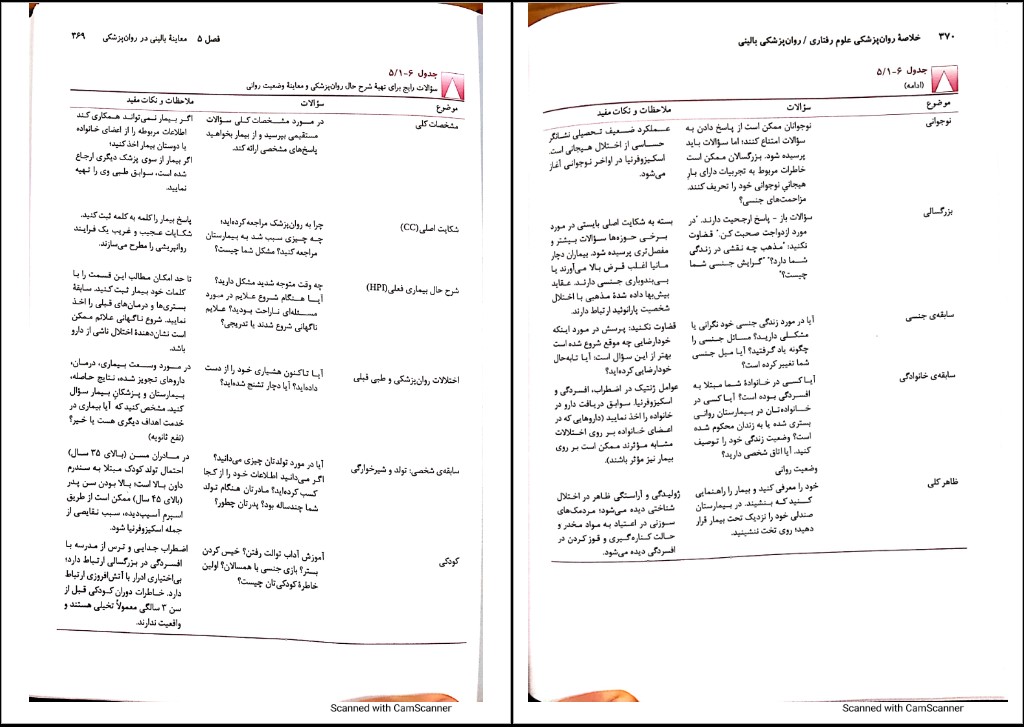 فصل ۵ معاینهٔ بالینی در روان‌پزشکی ۳۶۹
جدول ۶-۵/۱
سؤالات رایج برای تهیهٔ شرح حال روان‌پزشکی و معاینهٔ وضعیت روانی
موضوع سؤالات ملاحظات و نکات مفید
مشخصات کلی
در مورد مشخصات کلی سؤالات
مستقیمی بپرسید و از بیمار بخواهید
پاسخ‌های مشخصی ارائه کند.
اگر بیمار نمی‌تواند همکاری کند
اطلاعات مربوطه را از اعضای خانواده
یا دوستان بیمار اخذ کنید؛
اگر بیمار از سوی پزشک دیگری ارجاع
شده است، سوابق طبی وی را تهیه
نمایید.
شکایت اصلی(CC)
چرا به روان‌پزشک مراجعه کرده‌اید؛
چه چیزی سبب شد به بیمارستان
مراجعه کنید؟ مشکل شما چیست؟
پاسخ بیمار را کلمه به کلمه ثبت کنید.
شکایات عجیب و غریب یک فرایند
روانپریشی را مطرح می‌سازند.
شرح حال بیماری فعلی(HPI)
چه وقت متوجه شدید مشکل دارید؟
آیا هنگام شروع علایم در مورد
مسئله‌ای ناراحت بودید؟ علایم
ناگهانی شروع شدند یا تدریجی؟
تا حد امکان مطالب این قسمت را با
کلمات خود بیمار ثبت کنید. سابقهٔ
بستری‌ها و درمان‌های قبلی را اخذ
نمایید. شروع ناگهانی علائم ممکن
است نشان‌دهندهٔ اختلال ناشی از دارو
باشد.
اختلالات روان‌پزشکی و طبی قبلی
آیا تاکنون هشیاری خود را از دست
داده‌اید؟ آیا دچار تشنج شده‌اید؟
در مورد وسعت بیماری، درمان،
داروهای تجویز شده، نتایج حاصله،
بیمارستان و پزشکانِ بیمار سؤال
کنید. مشخص کنید که آیا بیماری در
خدمت اهداف دیگری هست یا خیر؟
(نفع ثانویه)
سابقه‌ی شخصی: تولد و شیرخوارگی
آیا در مورد تولدتان چیزی می‌دانید؟
اگر می‌دانید اطلاعات خود را از کجا
کسب کرده‌اید؟ مادرتان هنگام تولد
شما چندساله بود؟ پدرتان چطور؟
در مادران مسن (بالای ۳۵ سال)
احتمال تولد کودک مبتلا به سندرم
داون بالا است؛ بالا بودن سن پدر
(بالای ۴۵ سال) ممکن است از طریق
اسپرم آسیب‌دیده، سبب نقایصی از
جمله اسکیزوفرنیا شود.
کودکی
آموزش آداب توالت رفتن؟ خیس کردن
بستر؟ بازی جنسی با همسالان؟ اولین
خاطرهٔ کودکی‌تان چیست؟
اضطراب جدایی و ترس از مدرسه با
افسردگی در بزرگسالی ارتباط دارد؛
بی‌اختیاری ادرار با آتش‌افروزی ارتباط
دارد. خاطرات دوران کودکی قبل از
سن ۳ سالگی معمولاً تخیلی هستند و
واقعیت ندارند.
Scanned with CamScanner
۳۷۰ خلاصهٔ روان‌پزشکی علوم رفتاری / روان‌پزشکی بالینی
جدول ۶-۵/۱
(ادامه)
موضوع سؤالات ملاحظات و نکات مفید
نوجوانی
نوجوانان ممکن است از پاسخ دادن به
سؤالات امتناع کنند؛ اما سؤالات باید
پرسیده شود. بزرگسالان ممکن است
خاطرات مربوط به تجربیات دارای بارِ
هیجانیِ نوجوانی خود را تحریف کنند.
مزاحمت‌های جنسی؟
عملکرد ضعیف تحصیلی نشانگر
حساسی از اختلال هیجانی است.
اسکیزوفرنیا در اواخر نوجوانی آغاز
می‌شود.
بزرگسالی
سؤالات باز – پاسخ ارجحیت دارند. "در
مورد ازدواجت صحبت کن." قضاوت
نکنید: "مذهب چه نقشی در زندگی
شما دارد؟" "گرایش جنسی شما
چیست؟"
بسته به شکایت اصلی بایستی در مورد
برخی حوزه‌ها سؤالات بیشتر و
مفصل‌تری پرسیده شود. بیماران دچار
مانیا اغلب قرض بالا می‌آورند یا
بی‌بندوباری جنسی دارند. عقاید
بیش‌بها داده شدهٔ مذهبی با اختلال
شخصیت پارانوئید ارتباط دارند.
سابقه‌ی جنسی
آیا در مورد زندگی جنسی خود نگرانی یا
مشکلی دارید؟ مسائل جنسی را
چگونه یاد گرفتید؟ آیا میل جنسی
شما تغییر کرده است؟
قضاوت نکنید: پرسش در مورد اینکه
خودارضایی چه موقع شروع شده است
بهتر از این سؤال است: آیا تابه‌حال
خودارضایی کرده‌اید؟
سابقه‌ی خانوادگی
آیا کسی در خانوادهٔ شما مبتلا به
افسردگی بوده است؟ آیا کسی در
خانواده‌تان در بیمارستان روانی
بستری شده یا به زندان محکوم شده
است؟ وضعیت زندگی خود را توصیف
کنید. آیا اتاق شخصی دارید؟
عوامل ژنتیک در اضطراب، افسردگی و
اسکیزوفرنیا. سوابق دریافت دارو در
خانواده را اخذ نمایید (داروهایی که در
اعضای خانواده بر روی اختلالات
مشابه مؤثرند ممکن است بر روی
بیمار نیز مؤثر باشند).
وضعیت روانی
ظاهر کلی
خود را معرفی کنید و بیمار را راهنمایی
کنید که بنشیند. در بیمارستان
صندلی خود را نزدیک تخت بیمار قرار
دهید؛ روی تخت ننشینید.
ژولیدگی و آراستگی ظاهر در اختلال
شناختی دیده می‌شود؛ مردمک‌های
سوزنی در اعتیاد به مواد مخدر و
حالت کناره‌گیری و قوز کردن در
افسردگی دیده می‌شود.
Scanned with CamScanner